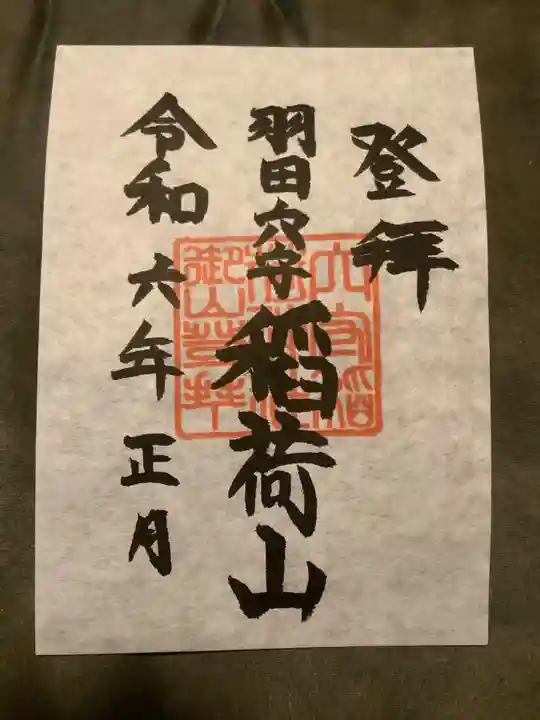 登拜
羽田穴守稲荷山
令和六年正月